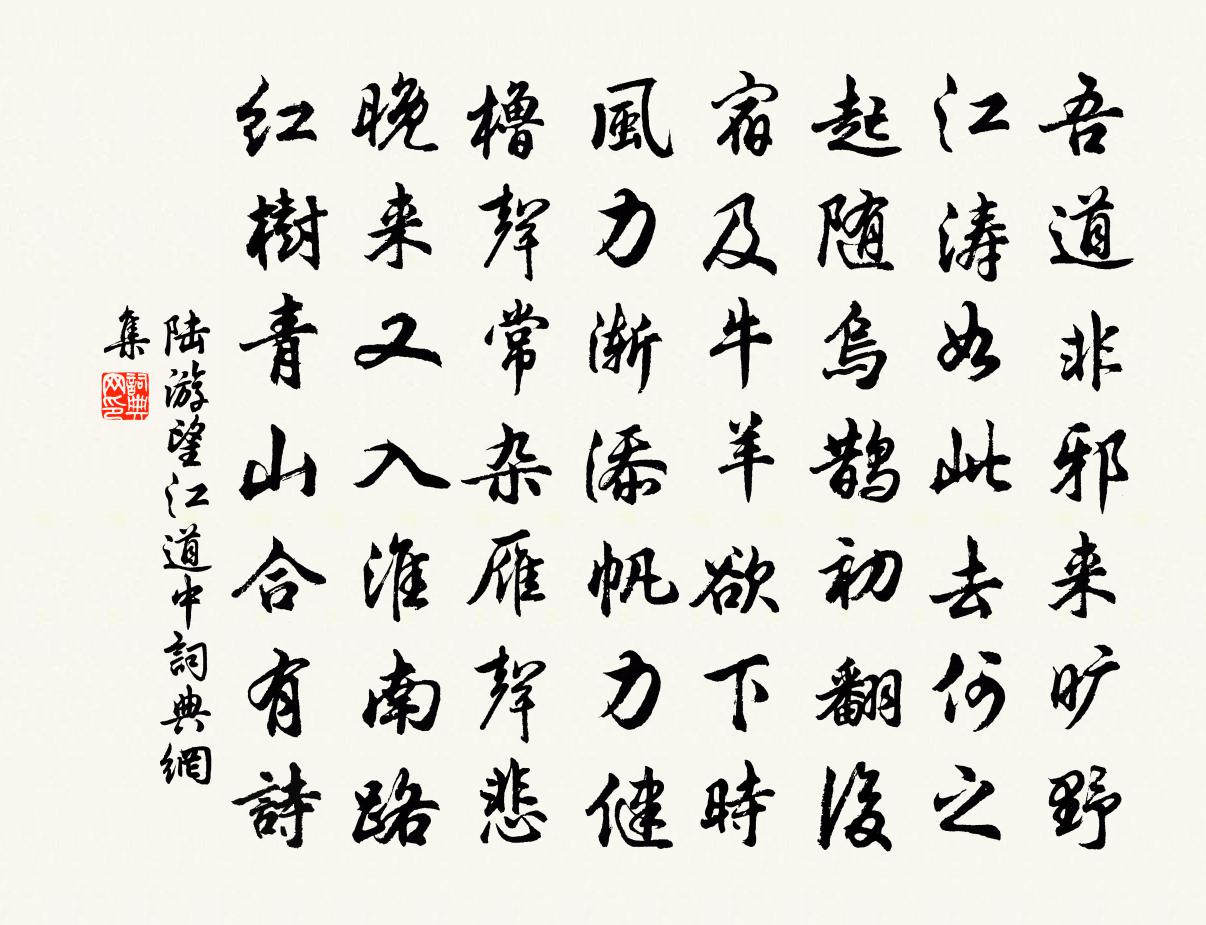 吾道非邪来旷野
江涛如此去何之
起随乌鹊初翻後
宿及牛羊欲下時
風力渐添帆力健
橹聲常杂雁聲悲
晚来又入淮南路
紅樹青山合有詩
陆游望江道中詞典網
集
詞典网印